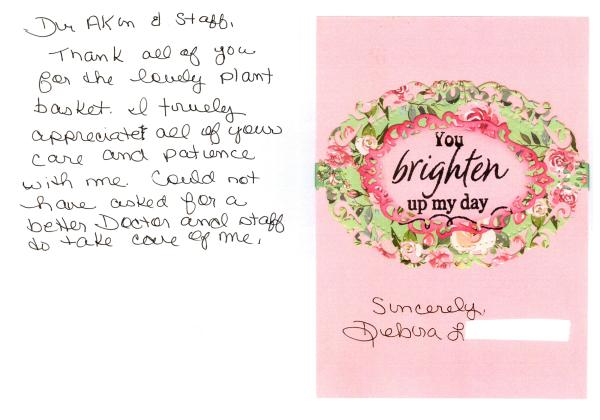 Dr. AKin & Staff,
Thank all of you
for the lovely plant
basket. I truely
appreciate all of your
care and patience
with me. Could not
have asked for a
better Doctor and staff
to take care of me.
You
brighten
up my day
Sincerely,
Debira L